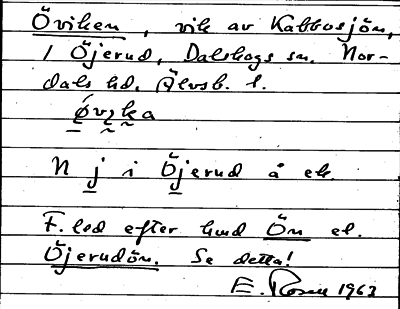 Öviken, vik av Kabbosjön,
1 Öjerud, Dalskogs sn. Nor-
dals hd. Älvsb. l.
N j i Öjerud å ek.
F. led efter hmd Ön el.
Öjerudön. Se detta!
E. Rosen 1963